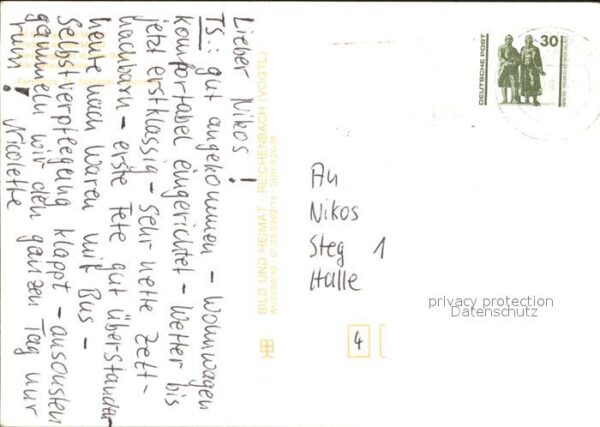 Lieber Nikos!
TS.: gut angekommen - Wohnwagen
komfortabel eingerichtet - Wetter bis
jetzt erstklassig - sehr nette Zelt-
nachbarn - erste Fete gut überstanden
heute nach waren mit Bus -
Selbstverpflegung klappt - ansonsten
gammeln wir den ganzen Tag nur
rum! Nicolette
BILD UND HEIMAT · REICHENBACH (VOGTL)
DEUTSCHE POST
30
An
Nikos
Steg 1
Halle
4
privacy protection
Datenschutz